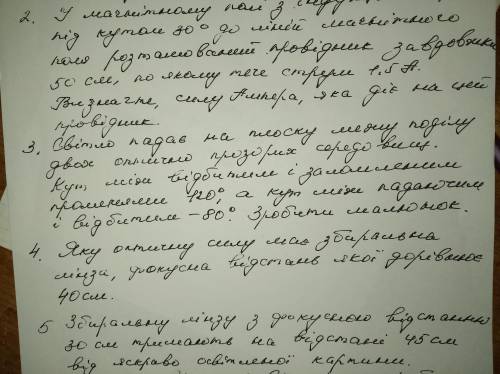 2. У магнітному полі з
під кутом 30° до ліній магнітного
поля розташований провідник завдовжки
50 см, по якому тече струм 1,5 А.
Визначте, силу Ампера, яка діє на цей
провідник.
3. Світло падає на плоску межу поділу
двох оптично прозорих середовищ.
Кут між відбитим і заломленим
променями 120°, а кут між падаючим
і відбитим – 80°. Зробити малюнок.
4. Яку оптичну силу має збиральна
лінза, фокусна відстань якої дорівнює
40 см.
5 Збиральну лінзу з фокусною відстанню
30 см тримають на відстані 45 см
від яскраво освітленої картини.